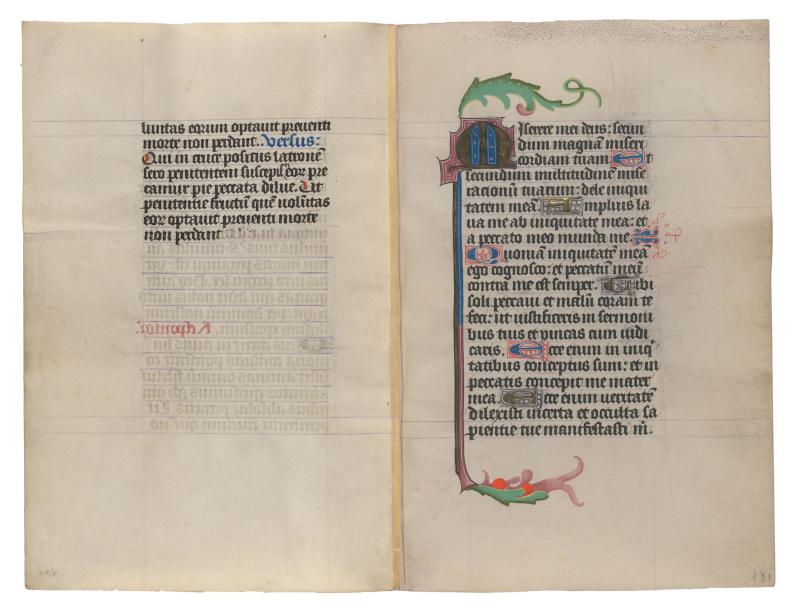 luntas eorum optauit preuenti
morte non perdant. Versus:
Qui in cruce positus latronē
sero penitentem suscepisͭ eor pre
camur pie peccata dilue. Ut
penitentie fructū quē volūtas
eor optauit preuenti morte
non perdant
Miserere mei deus: secun
dum magnā miseri
cordiam tuam Et
secundum multitudinē mise
rationū tuarum: dele iniqui
tatem meā. Amplius la
ua me ab iniquitate mea: et
a peccato meo munda me
Quoniam iniquitatē meā
ego cognosco: et peccatū meū
contra me est semper. Tibi
soli peccaui et malū coram te
feci: ut iustificeris in sermoni
bus tuis et vincas cum iudi
caris. Ecce enim in iniq̇
tatibus conceptus sum: et in
peccatis concepit me mater
mea. Ecce enim ueritatē
dilexisti incerta et occulta sa
pientie tue manifestasti m̄.
181